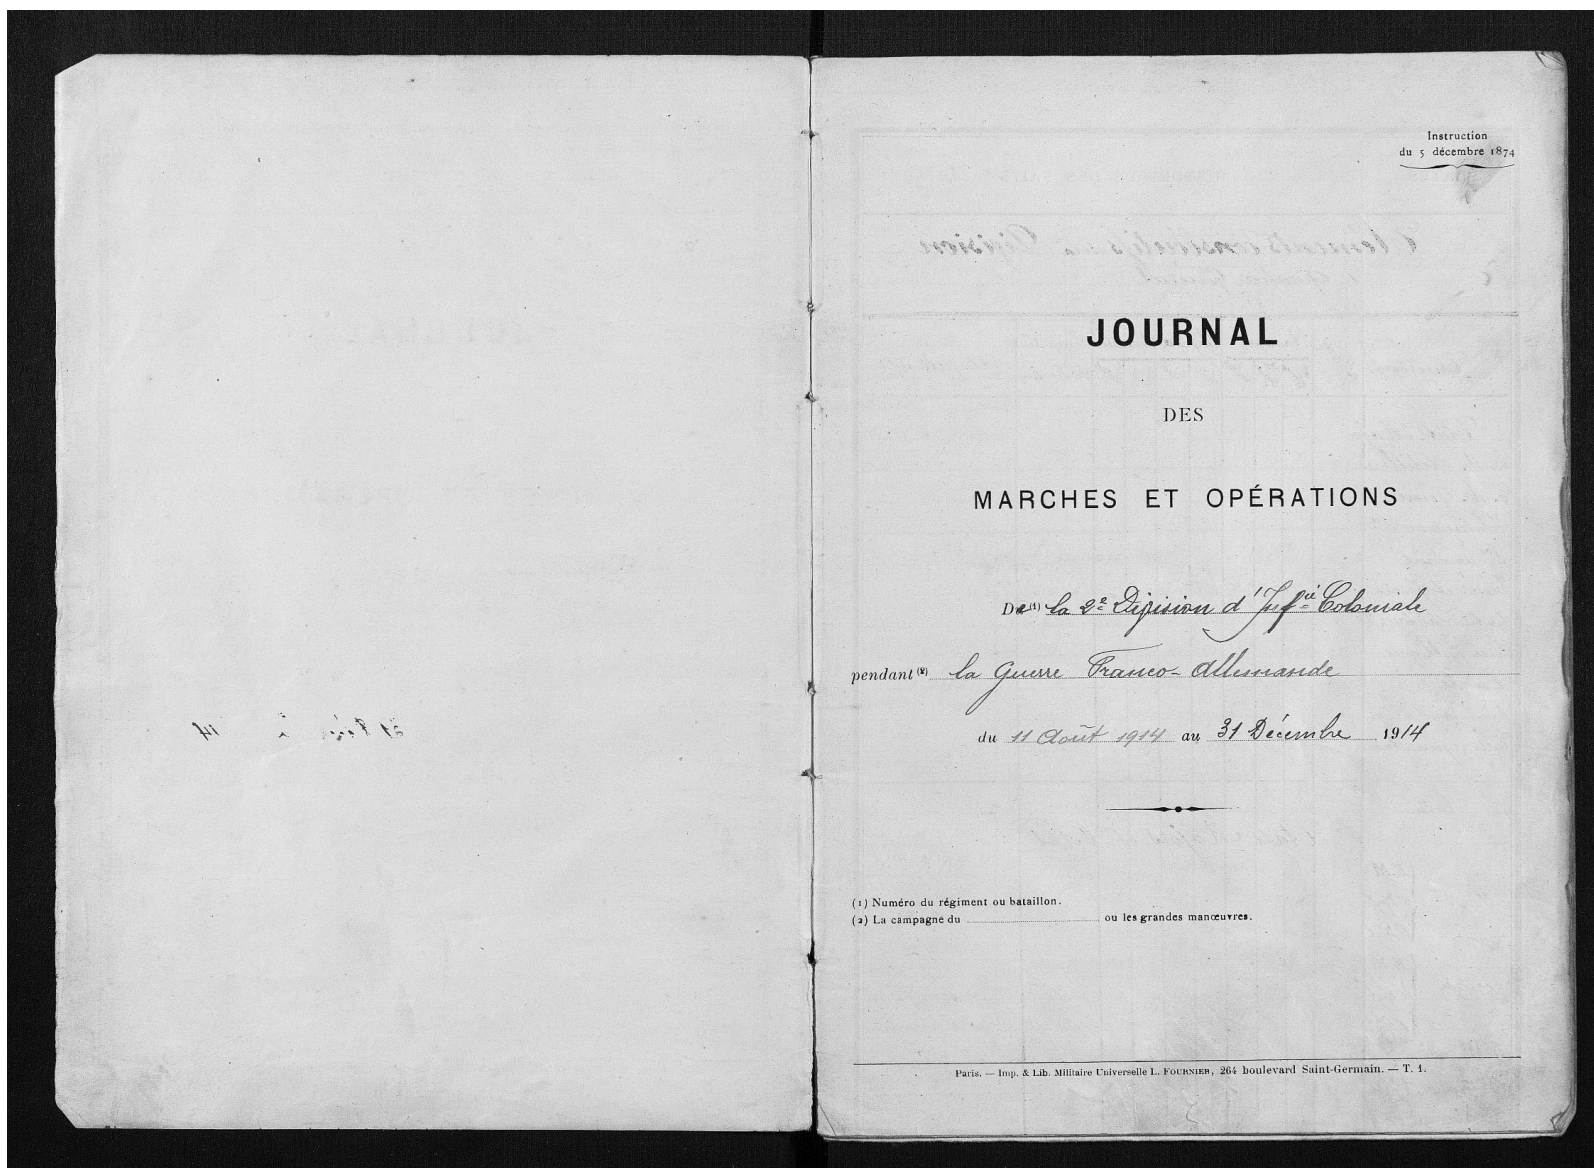 Instruction
du 5 décembre 1874
JOURNAL
DES
MARCHES ET OPÉRATIONS
De (1) la 2e Division d'Infie Coloniale
pendant (2) la Guerre Franco-Allemande
du 11 Août 1914 au 31 Décembre 1914
(1) Numéro du régiment ou bataillon.
(2) La campagne du ........ ou les grandes manœuvres.
Paris. — Imp. & Lib. Militaire Universelle L. FOURNIER, 264 boulevard Saint-Germain. — T. 1.